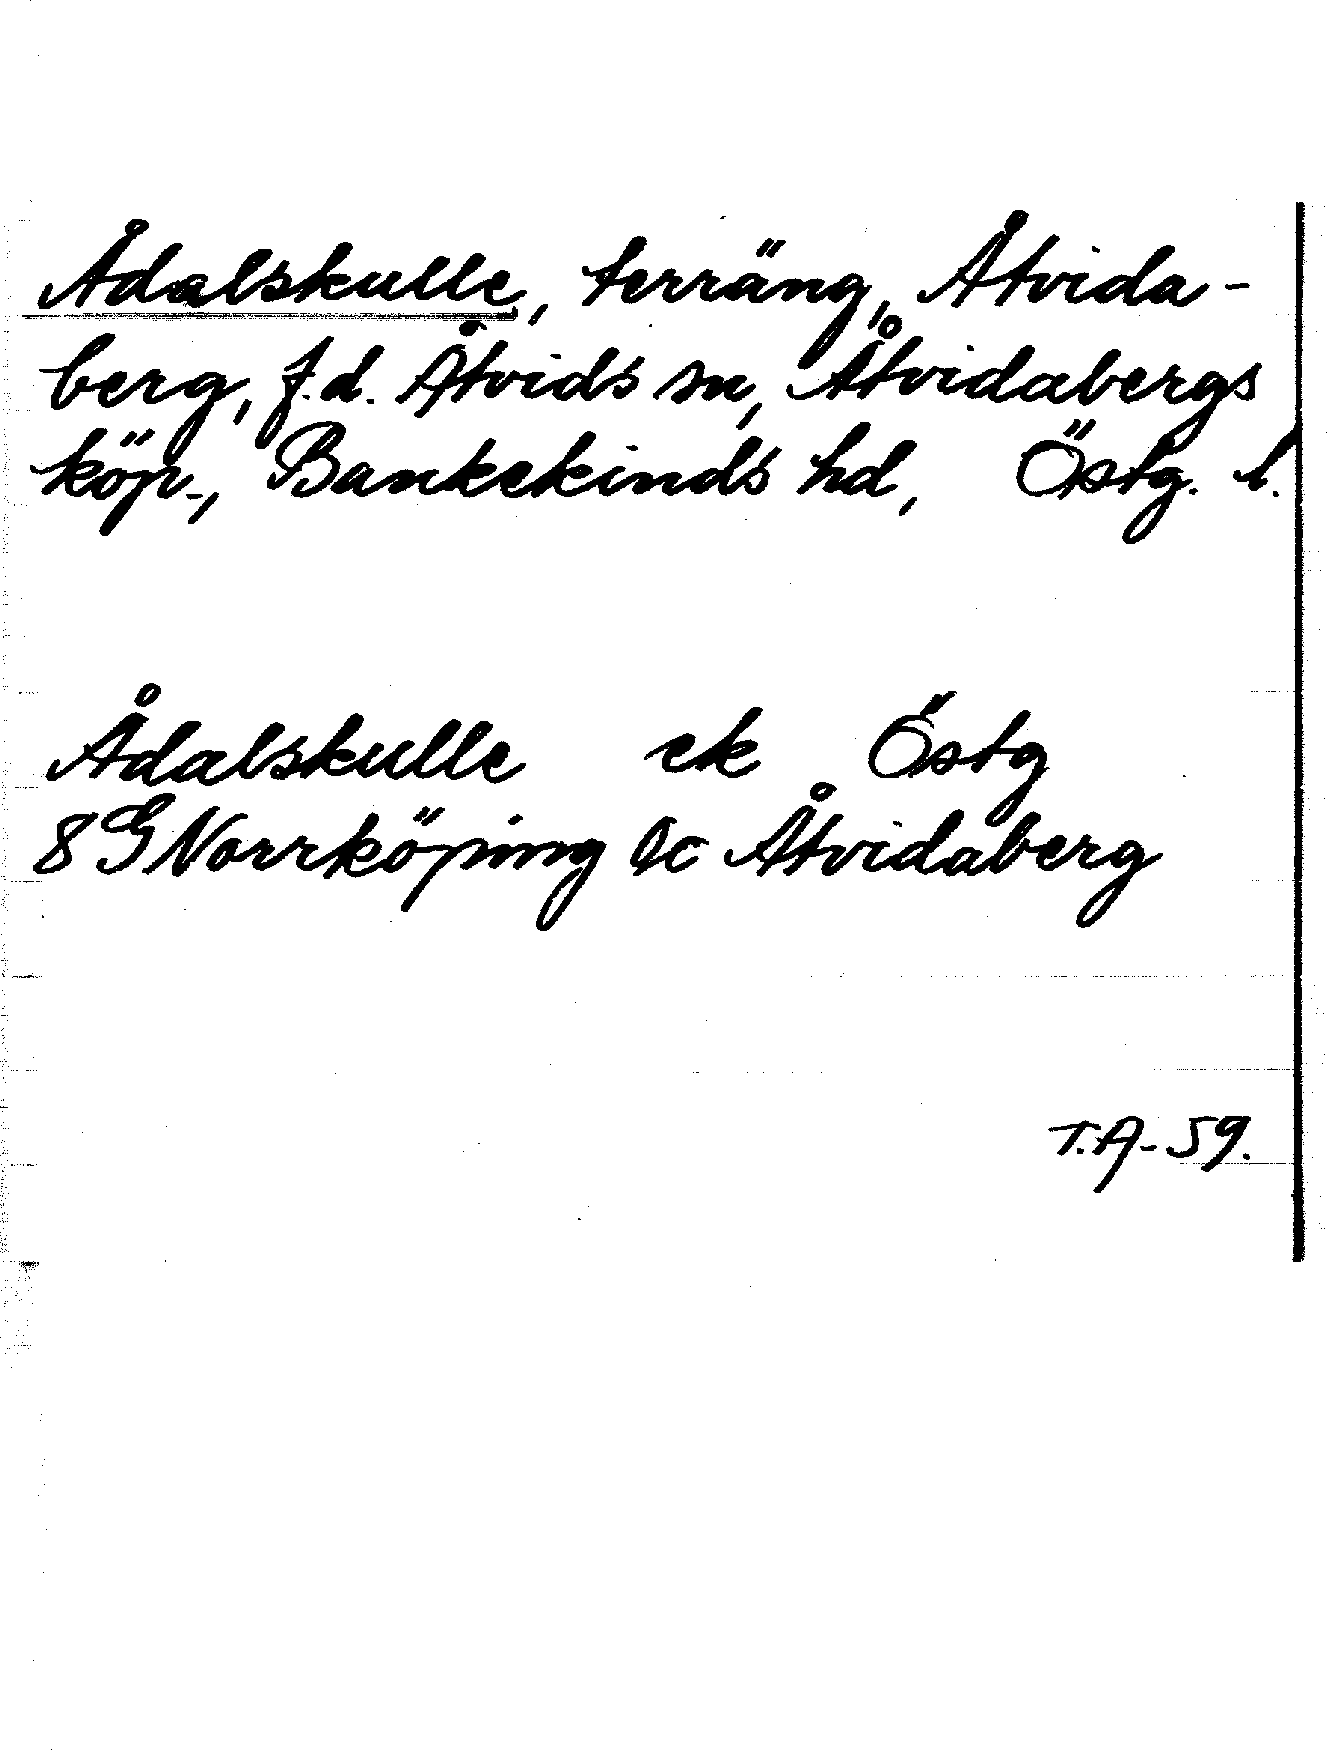 Ådalskulle, terräng, Åtvida-
berg, f.d. Åtvids sn, Åtvidabergs
köp., Bankekinds hd, Östg. l.
Ådalskulle ek Östg
8G Norrköping 0c Åtvidaberg
T.A-59.